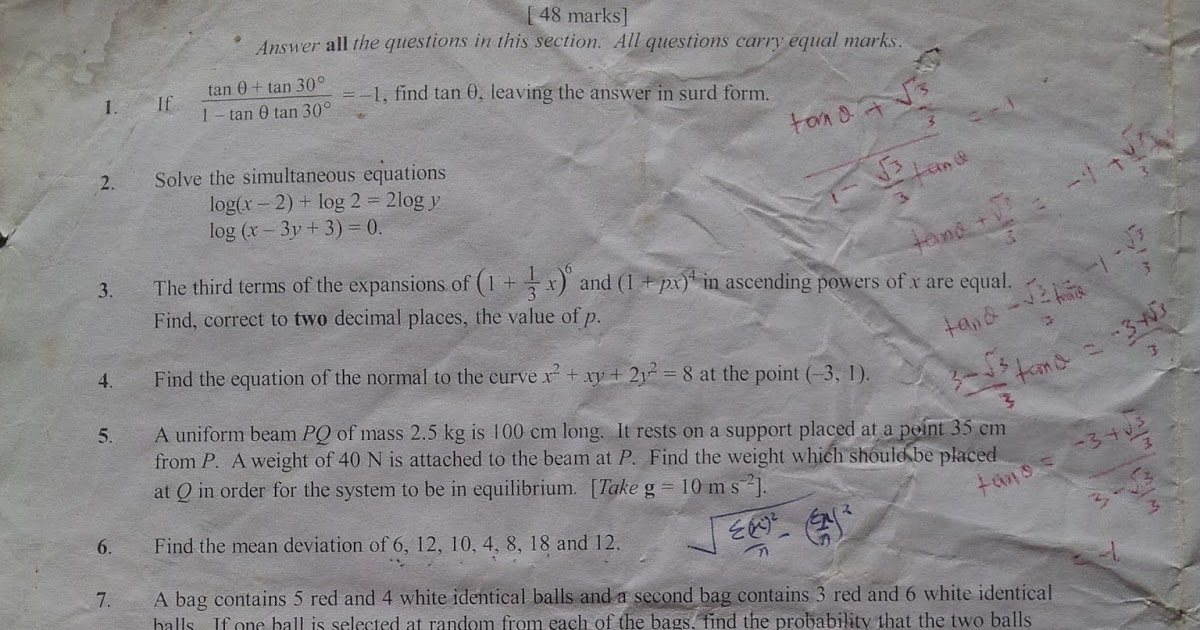 [ 48 marks]
Answer all the questions in this section. All questions carry equal marks.
1. If (tan θ + tan 30°)/(1 – tan θ tan 30°) = –1, find tan θ, leaving the answer in surd form.
2. Solve the simultaneous equations
log(x – 2) + log 2 = 2log y
log (x – 3y + 3) = 0.
3. The third terms of the expansions of (1 + 1/3 x)⁶ and (1 + px)⁴ in ascending powers of x are equal.
Find, correct to two decimal places, the value of p.
4. Find the equation of the normal to the curve x² + xy + 2y² = 8 at the point (–3, 1).
5. A uniform beam PQ of mass 2.5 kg is 100 cm long. It rests on a support placed at a point 35 cm
from P. A weight of 40 N is attached to the beam at P. Find the weight which should be placed
at Q in order for the system to be in equilibrium. [Take g = 10 m s⁻²].
6. Find the mean deviation of 6, 12, 10, 4, 8, 18 and 12.
7. A bag contains 5 red and 4 white identical balls and a second bag contains 3 red and 6 white identical
balls. If one ball is selected at random from each of the bags, find the probability that the two balls
tan θ + √3/3
1 – √3/3 tan θ
= –1
tan θ + √3/3 = –1 + √3/3
tan θ – √3/3 tan θ
–1 – √3/3
3 – √3/3 tan θ = –3 + √3/3
tan θ = –3 + √3/3
3 – √3/3
= –1